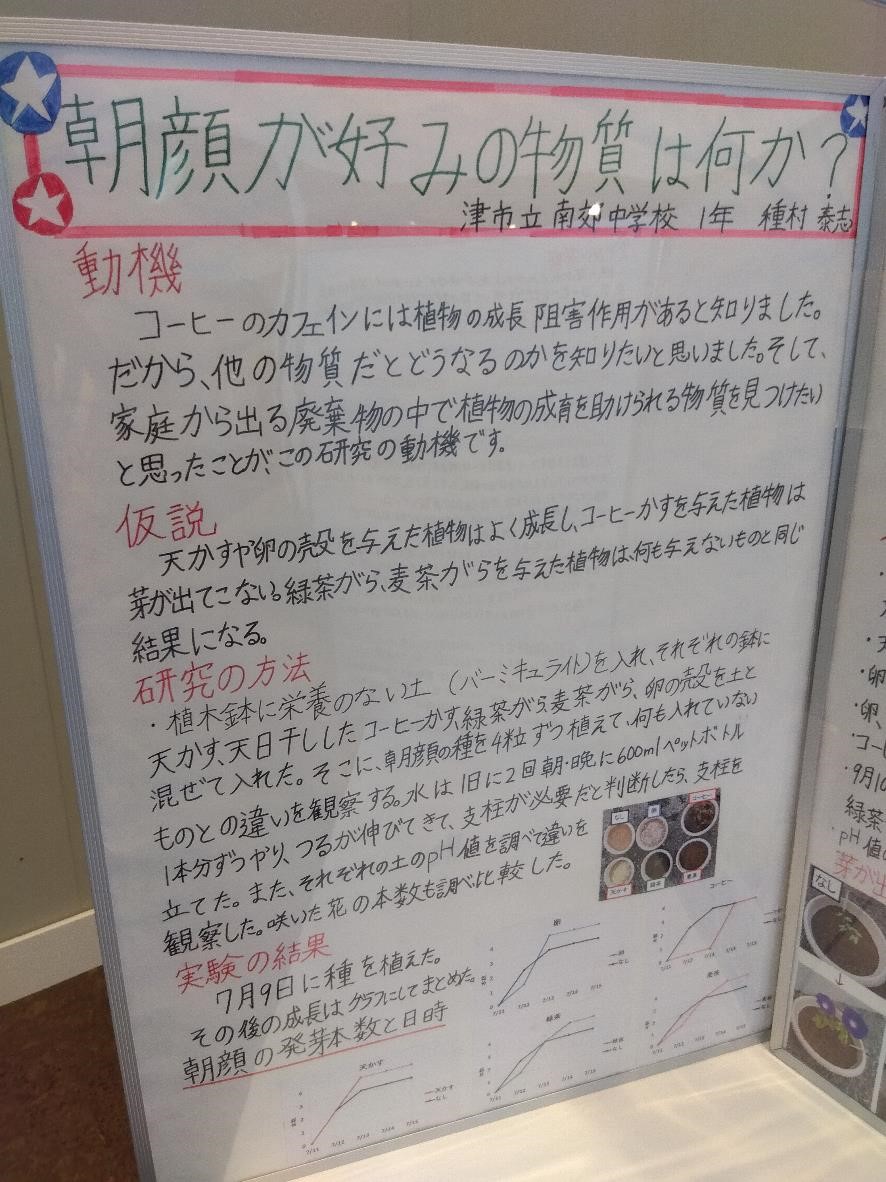 朝顔が好みの物質は何か?
津市立南郊中学校 1年 種村 泰志
動機
コーヒーのカフェインには植物の成長阻害作用があると知りました。
だから、他の物質だとどうなるのかを知りたいと思いました。そして、
家庭から出る廃棄物の中で植物の成育を助けられる物質を見つけたい
と思ったことが、この研究の動機です。
仮説
天かすや卵の殻を与えた植物はよく成長し、コーヒーかすを与えた植物は
芽が出てこない。緑茶がら、麦茶がらを与えた植物は、何も与えないものと同じ
結果になる。
研究の方法
・植木鉢に栄養のない土(バーミキュライト)を入れ、それぞれの鉢に
天かす、天日干ししたコーヒーかす、緑茶がら麦茶がら、卵の殻を土と
混ぜて入れた。そこに、朝顔の種を4粒ずつ植えて、何も入れていない
ものとの違いを観察する。水は1日に2回朝・晩に600mlペットボトル
1本分ずつやり、つるが伸びてきて、支柱が必要だと判断したら、支柱を
立てた。また、それぞれの土のpH値を調べて違いを
観察した。咲いた花の本数も調べ比較した。
なし 卵 コーヒー
天かす 緑茶 麦茶
実験の結果
7月9日に種を植えた。
その後の成長はグラフにしてまとめた。
朝顔の発芽本数と日時
卵
なし
コーヒー
緑茶
なし
麦茶
なし
天かす
天かす
なし
7/11 7/12 7/13 7/14 7/15
・天
・卵
・卵、
・コー
・9月10
緑茶
・pH値の
芽が出
なし
↓